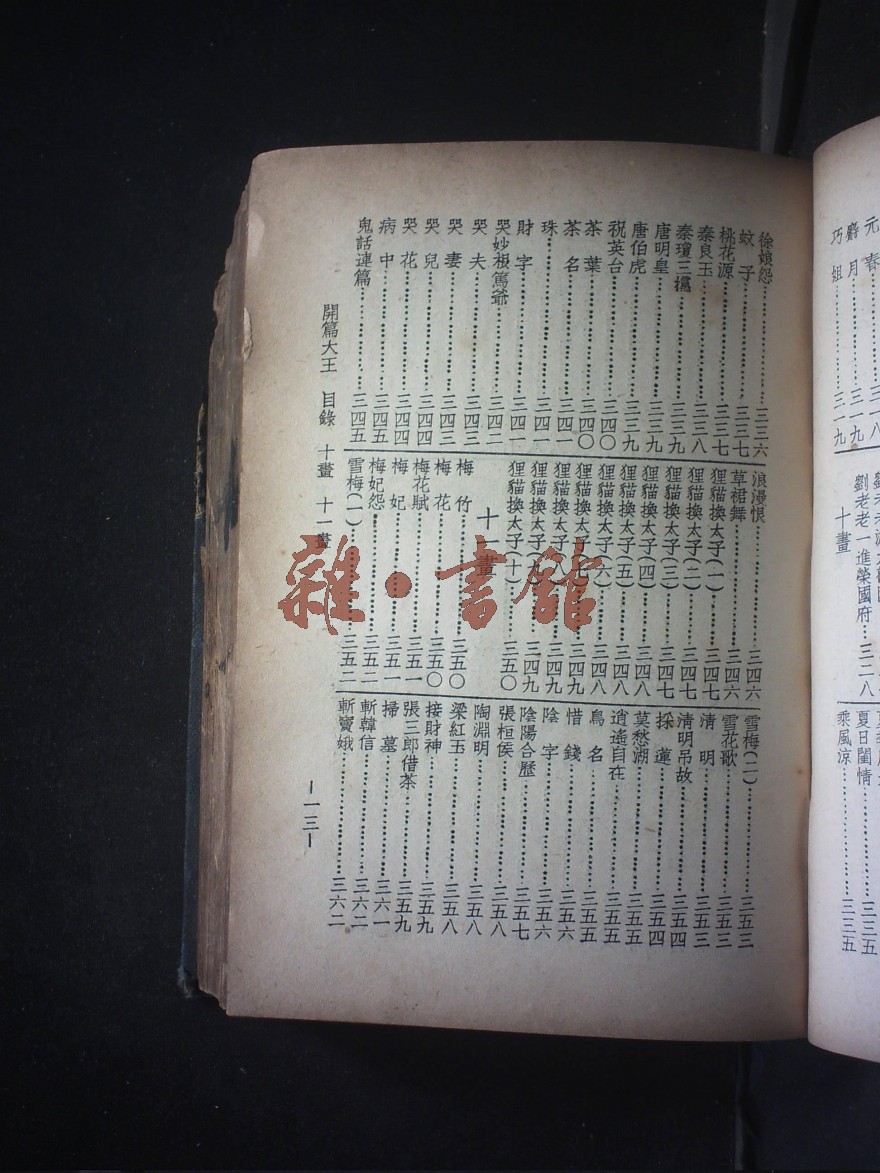 元春……三一八
麝月……三一九
巧姐……三一九
劉老老一進榮國府……三二八
十畫
夏日閨情……三三五
乘風涼……三三五
徐娘怨……三三六
蚊子……三三七
桃花源……三三七
秦良玉……三三八
秦瓊三擋……三三九
唐明皇……三三九
唐伯虎……三三九
祝英台……三四〇
茶葉……三四〇
茶名……三四一
珠……三四一
財字……三四一
哭妙根篤爺……三四二
哭夫……三四三
哭妻……三四三
哭兒……三四四
哭花……三四四
病中……三四五
鬼話連篇……三四五
浪漫恨……三四六
草裙舞……三四六
狸貓換太子(一)……三四七
狸貓換太子(二)……三四七
狸貓換太子(三)……三四七
狸貓換太子(四)……三四八
狸貓換太子(五)……三四八
狸貓換太子(六)……三四八
狸貓換太子(七)……三四九
狸貓換太子(八)……三四九
狸貓換太子(九)……三四九
狸貓換太子(十)……三五〇
十一畫
梅竹……三五〇
梅花……三五〇
梅花賦……三五一
梅妃……三五一
梅妃怨……三五二
雪梅(一)……三五二
雪梅(二)……三五三
雪花歌……三五三
清明……三五三
清明吊故……三五四
採蓮……三五四
莫愁湖……三五五
逍遙自在……三五五
鳥名……三五五
惜錢……三五六
陰字……三五六
陰陽合歷……三五七
張桓侯……三五八
陶淵明……三五八
梁紅玉……三五八
接財神……三五九
張三郎借茶……三五九
掃墓……三六一
斬韓信……三六二
斬竇娥……三六二
開篇大王 目錄 十畫 十一畫
—一三—
雜·書館